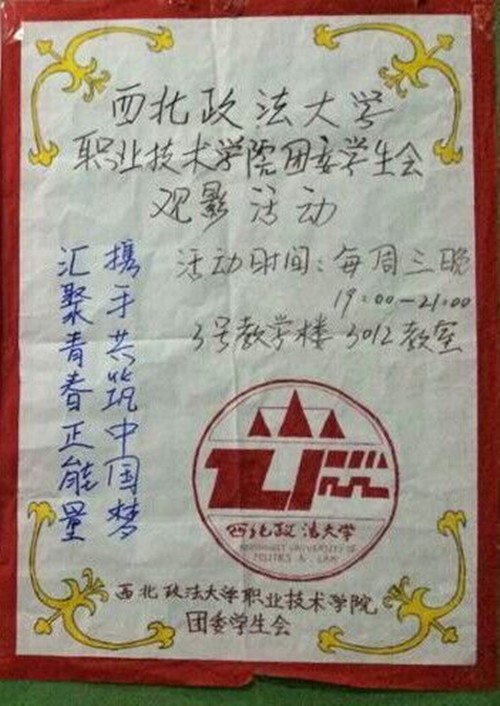 西北政法大学
职业技术学院团委学生会
观影活动
活动时间：每周三晚
19：00—21：00
3号教学楼 3012教室
携手共筑中国梦
汇聚青春正能量
西北政法大学
NORTHWEST UNIVERSITY OF
POLITICS & LAW
西北政法大学职业技术学院
团委学生会